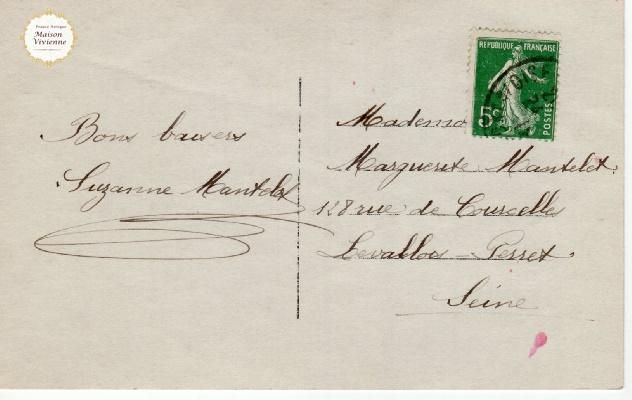 France Antique
Maison
Vivienne
REPUBLIQUE FRANÇAISE
5c
POSTES
Bons baisers
Suzanne Mantelet
Mademo
Marguerite Mantelet.
128 rue de Courcelle
Levallois-Perret.
Seine